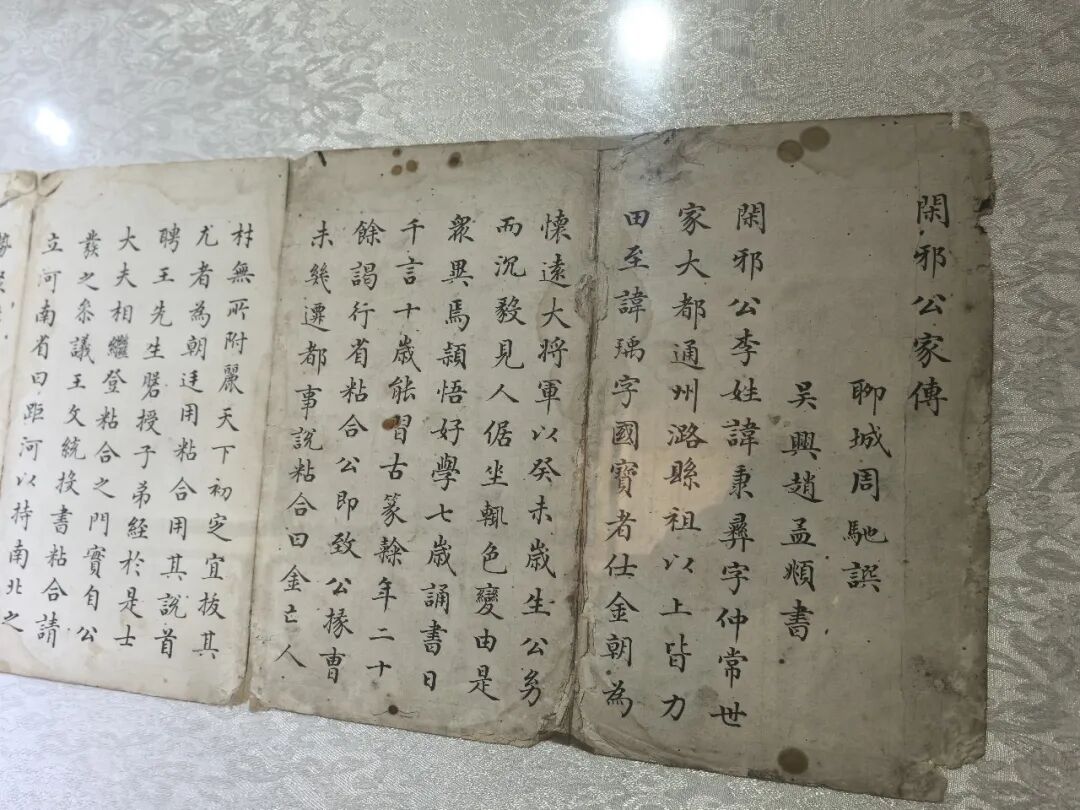 閑邪公家傳
聊城周馳譔
吴興趙孟頫書
閑邪公李姓諱秉彝字仲常世
家大都通州潞縣祖以上皆力
田至諱瑀字國寶者仕金朝為
懷遠大將軍以癸未歳生公㓜
而沉毅見人倨坐輒色變由是
衆異焉頴悟好學七歳誦書日
千言十歳能習古篆籀年二十
餘謁行省粘合公即致公掾曺
未幾遷都事說粘合曰金亡人
材無所附麗天下初定宜抜其
尤者為朝廷用粘合用其說首
聘王先生磐授子弟經於是士
大夫相繼登粘合之門實自公
發之叅議王文統投書粘合請
立河南省曰距河以持南北之